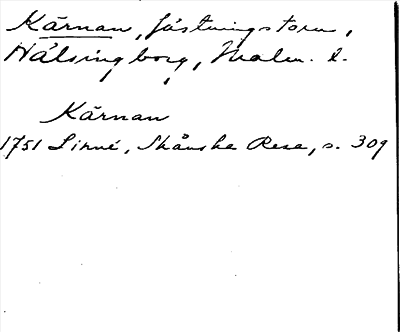 Kärnan, fästningstorn,
Hälsingborg, Malm. l.
Kärnan
1751 Linné, Skånska Resa, s. 309